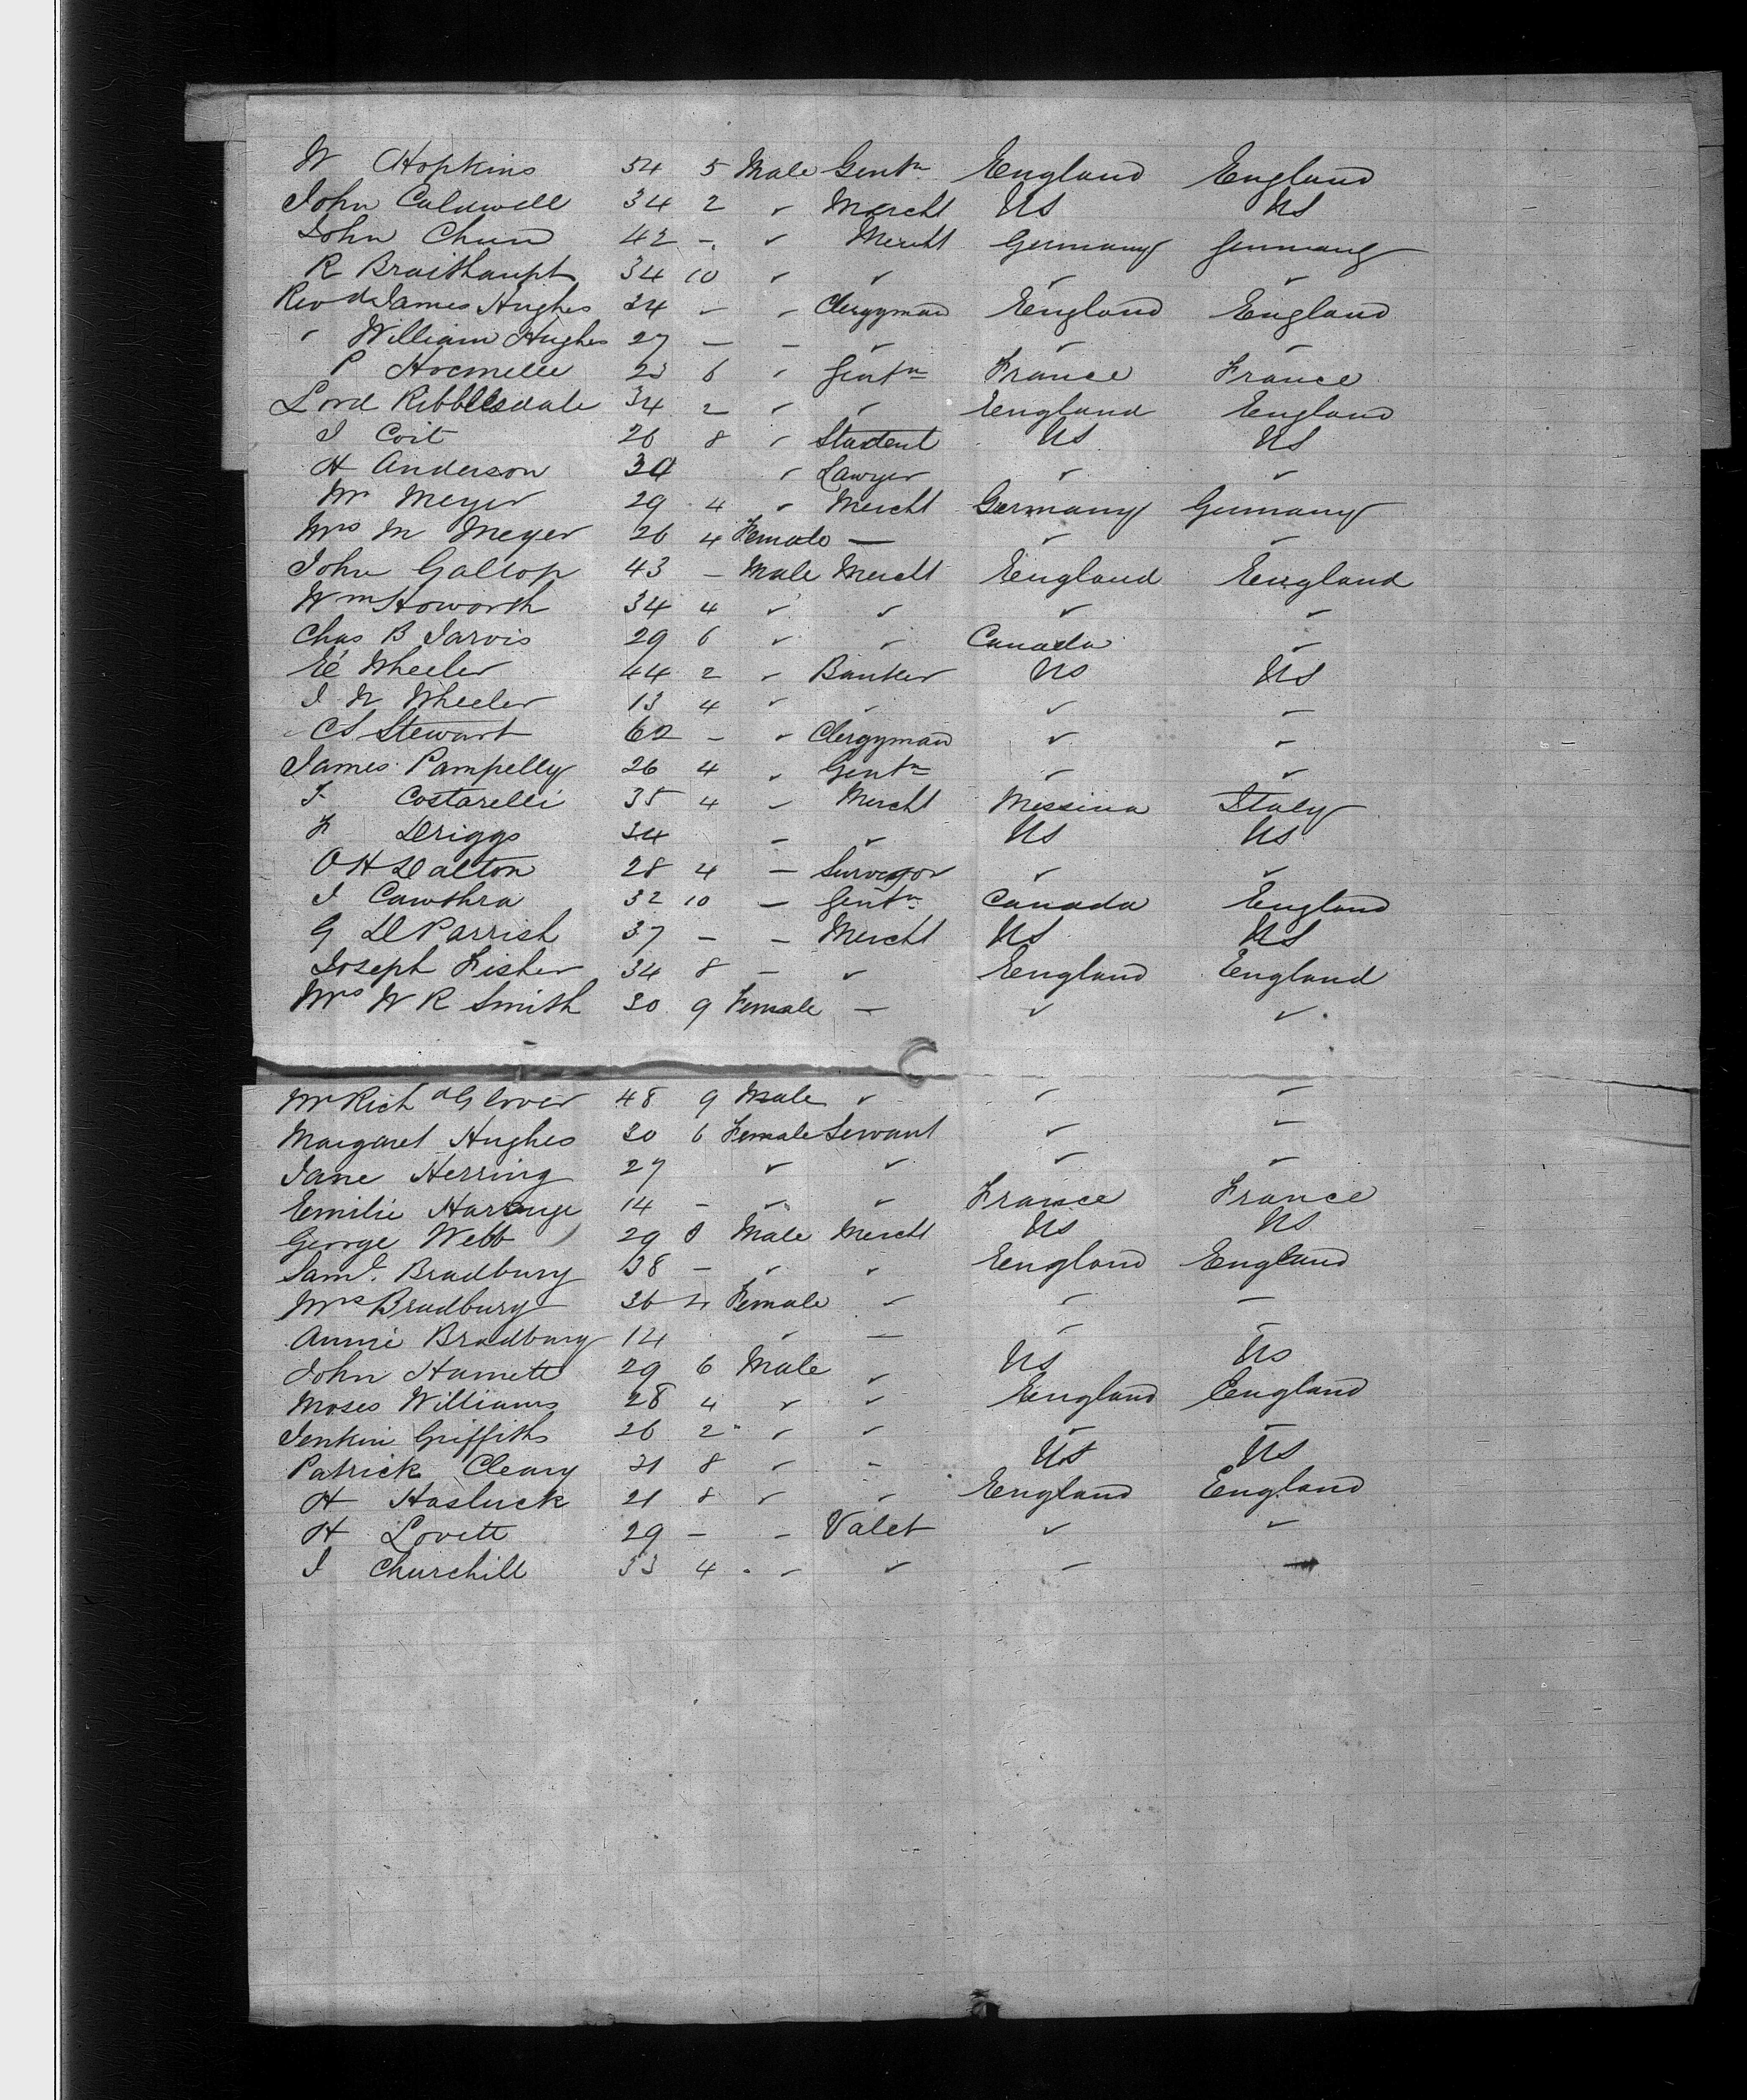 W Hopkins 54 5 Male Gentn England England
John Caldwell 34 2 " Mercht US US
John Chun 42 - " Mercht Germany Germany
R Braithaupt 34 10 " " " "
Revd James Hughes 34 " " Clergyman England England
" William Hughes 27 - - " " "
P 23 6 " Gentn France France
Lord Ribblesdale 34 2 " " England England
J Coit 26 8 " Student US US
H Anderson 30 " Lawyer " "
Mr Meyer 29 4 " Mercht Germany Germany
Mrs M Meyer 26 4 Female - " "
John Gallop 43 - Male Mercht England England
Wm Howorth 34 4 " " " "
Chas B Jarvis 29 6 " " Canada "
E Wheeler 44 2 " Banker US US
J N Wheeler 13 4 " " " "
CS Stewart 62 - " Clergyman " "
James Pampelly 26 4 " Gentn " "
F Costarelli 35 4 " Mercht Messina Italy
F Driggs 34 " " US US
O H Dalton 28 4 - Surveyor " "
J Cawthra 32 10 - Gentn Canada England
G D Parrish 37 - - Mercht US US
Joseph Fisher 34 8 - " England England
Mrs W R Smith 30 9 Female - " "
Mr Richd Glover 48 9 Male " " "
Margaret Hughes 30 6 Female Servant " "
Jane Herring 27 " " " "
Emilie 14 - " " France France
George Webb 29 8 Male Mercht US US
Saml. Bradbury 38 - " " England England
Mrs Bradbury 36 4 Female " " "
Annie Bradbury 14 " - " "
John Hamett 29 6 Male " US US
Moses Williams 28 4 " " England England
Jenkin Griffiths 26 2 " " " "
Patrick Cleary 31 8 " " US US
H Hasluck 21 8 " " England England
H Lovett 29 - - Valet " "
J Churchill 33 4 " " " "